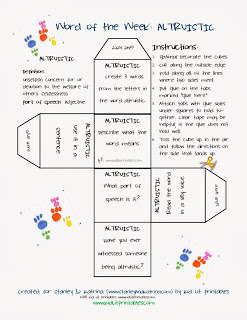 Word of the Week: ALTRUISTIC
ALTRUISTIC
Definition:
unselfish concern for or
devotion to the welfare of
others; selflessness
part of speech: Adjective
glue here
ALTRUISTIC
create 3 words
from the letters in
the word altruistic.
Instructions
1. Optional: decorate the cubes.
2. Cut along outside edge.
3. Fold along all of the lines
where two sides meet.
4. Put glue on the tabs
marked "glue here"
5. Attach tabs with glue sides
under squares to hold to-
gether. Clear tape may be
helpful, if the glue does not
hold well.
6. Toss the cube up in the air
and follow the directions on
the side that lands up.
glue here
ALTRUISTIC
use it in a
sentence
ALTRUISTIC
describe what the
word means.
ALTRUISTIC
What part of
speech is it?
ALTRUISTIC
Read the word
in a silly voice
glue here
ALTRUISTIC
Have you ever
witnessed someone
being altruistic?
created for Stanley & Katrina (www.stanleyandkatrina.com) by Kid Lit Printables
www.kidlitprintables.com